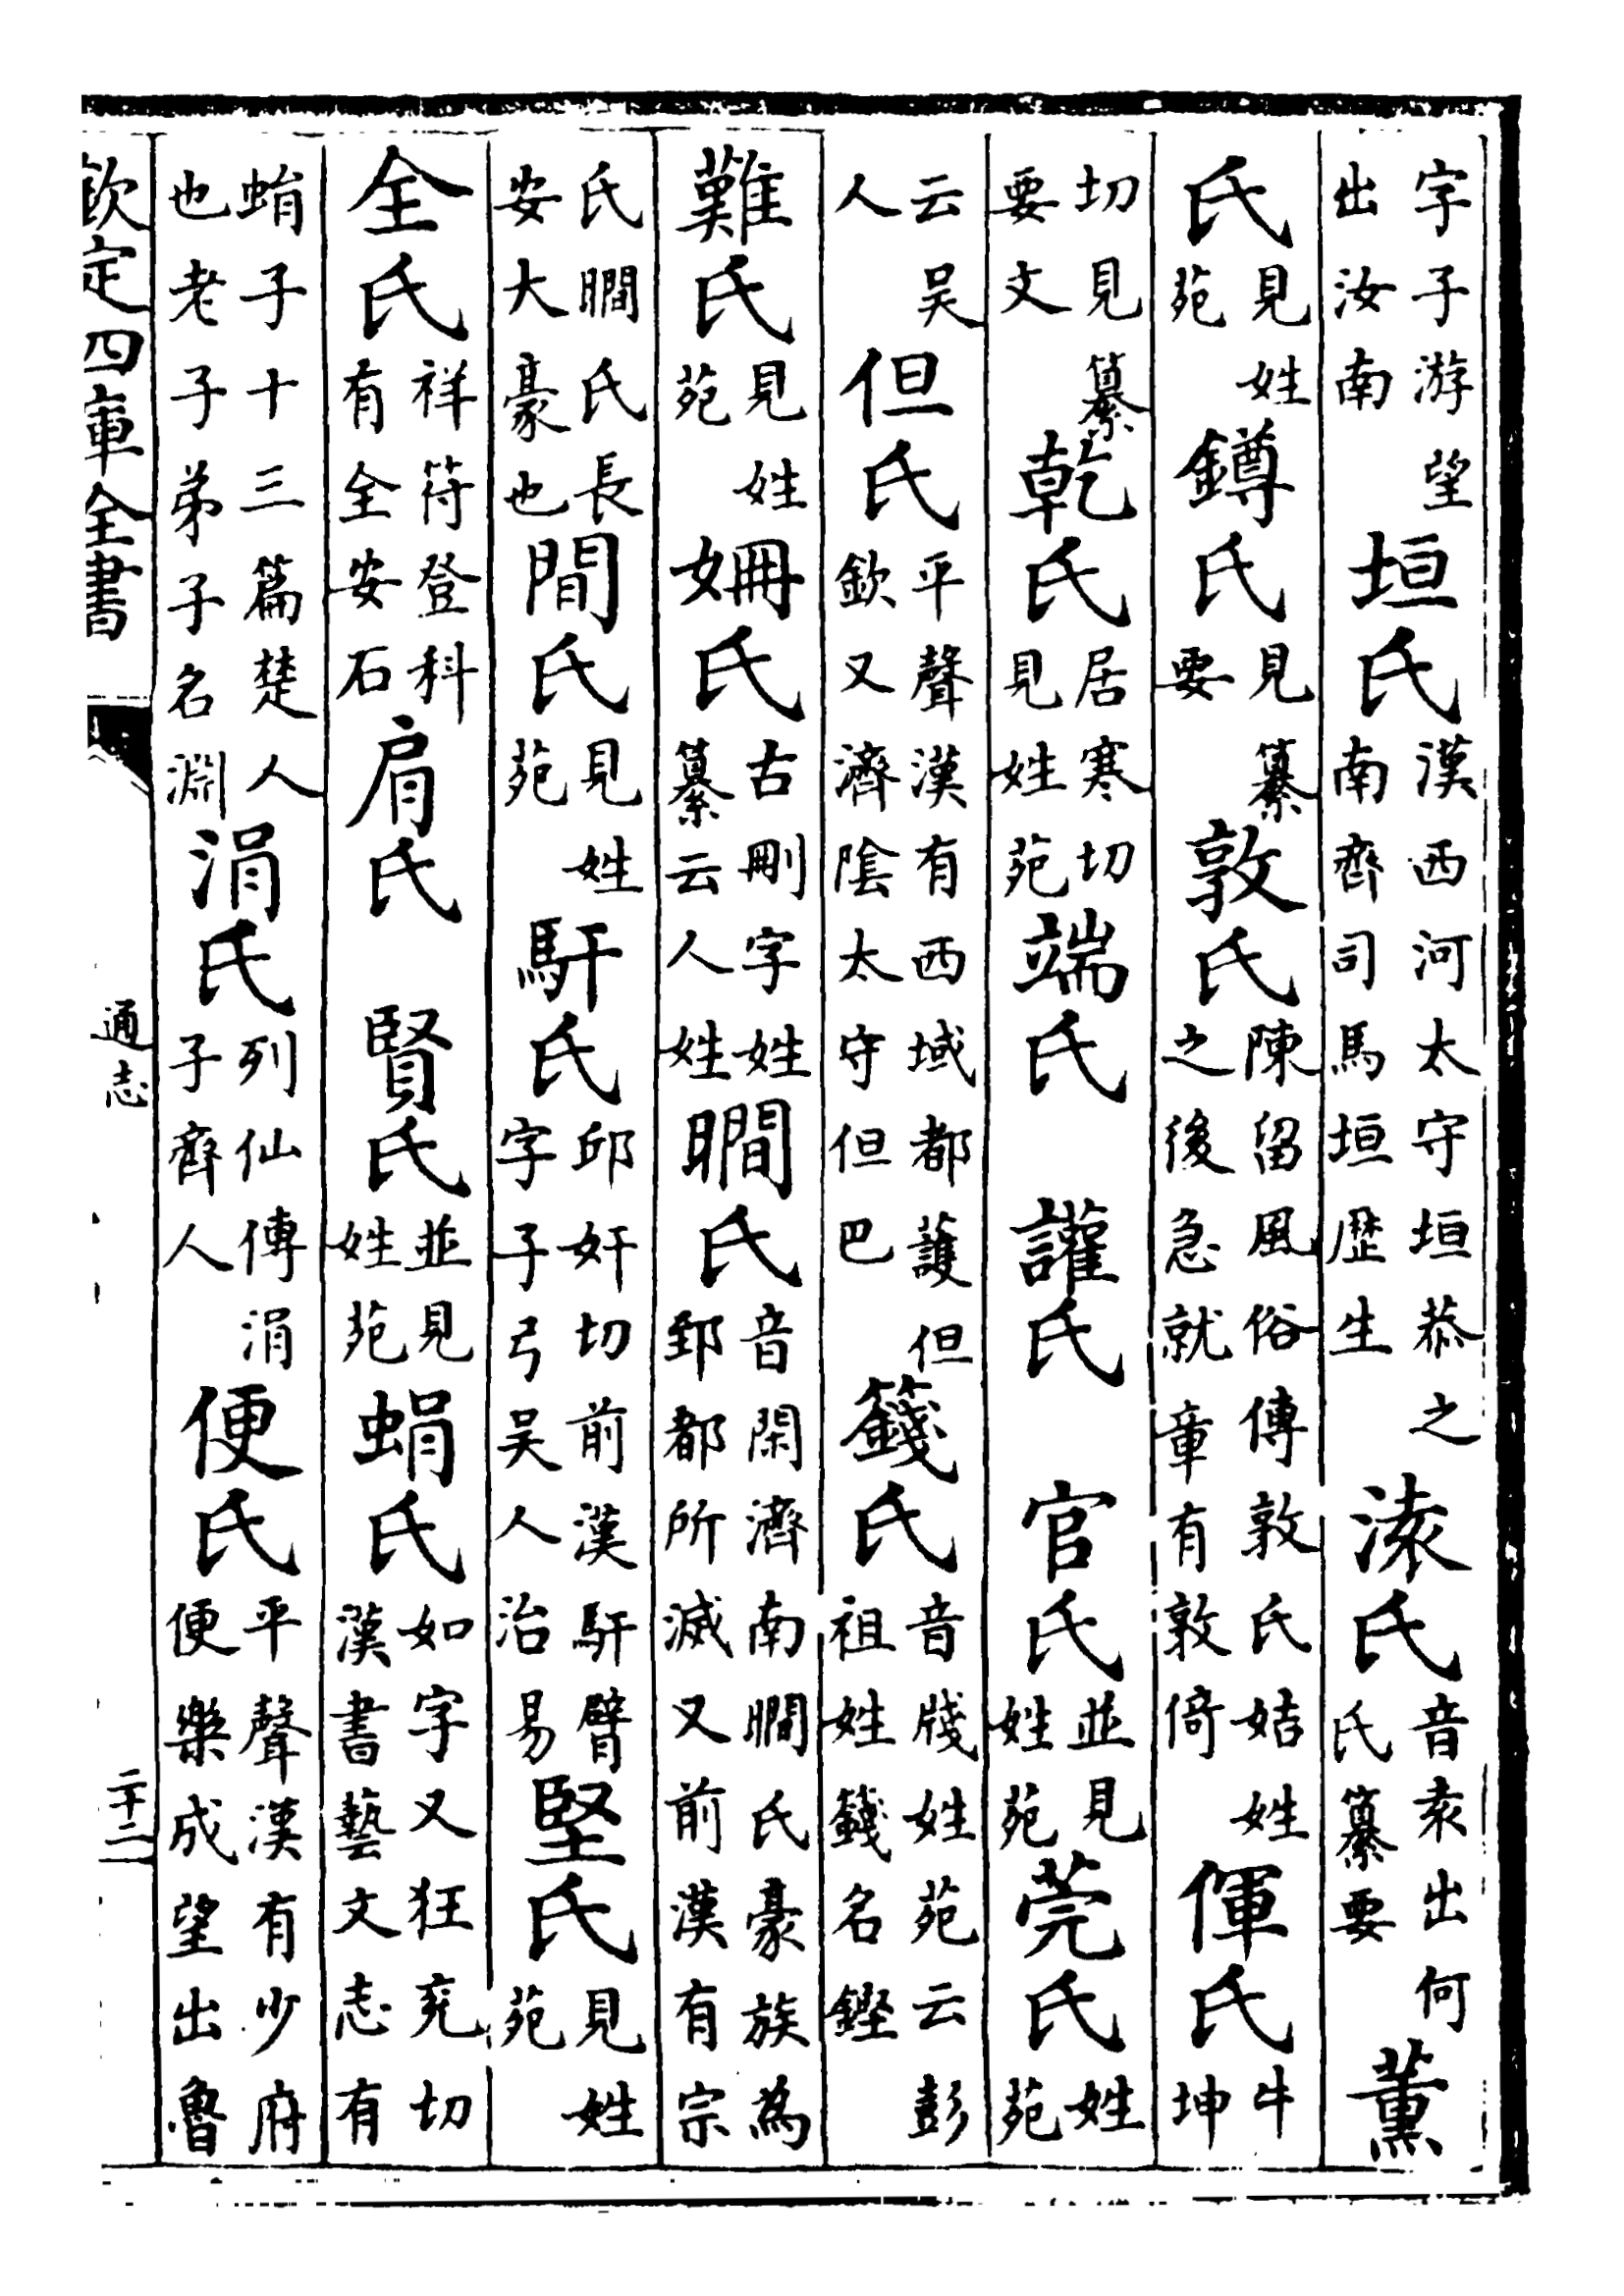 字子游望出汝南垣氏漢西河太守垣恭之南齊司馬垣歴生溒氏音袁出何氏纂要薫
氏見姓苑鐏氏見纂要敦氏陳留風俗傳敦氏姞姓之後急就章有敦倚㑮氏牛坤
切見纂要文乾氏居寒切見姓苑端氏讙氏官氏並見姓苑莞氏姓苑
云吴人但氏平聲漢有西域都䕶但欽又濟隂太守但巴籛氏音牋姓苑云彭祖姓籛名鏗
難氏見姓苑姍氏古刪字姓纂云人姓瞯氏音閑濟南瞯氏豪族為郅都所滅又前漢有宗
氏瞯氏長安大豪也閒氏見姓苑馯氏邱奸切前漢馯臂字子弓吴人治易堅氏見姓苑
全氏祥符登科有全安石肩氏賢氏並見姓苑蜎氏如字又狂兖切漢書藝文志有
蜎子十三篇楚人也老子弟子名淵涓氏列仙傳涓子齊人便氏平聲漢有少府便樂成望出魯
欽定四庫全書
通志
二十二